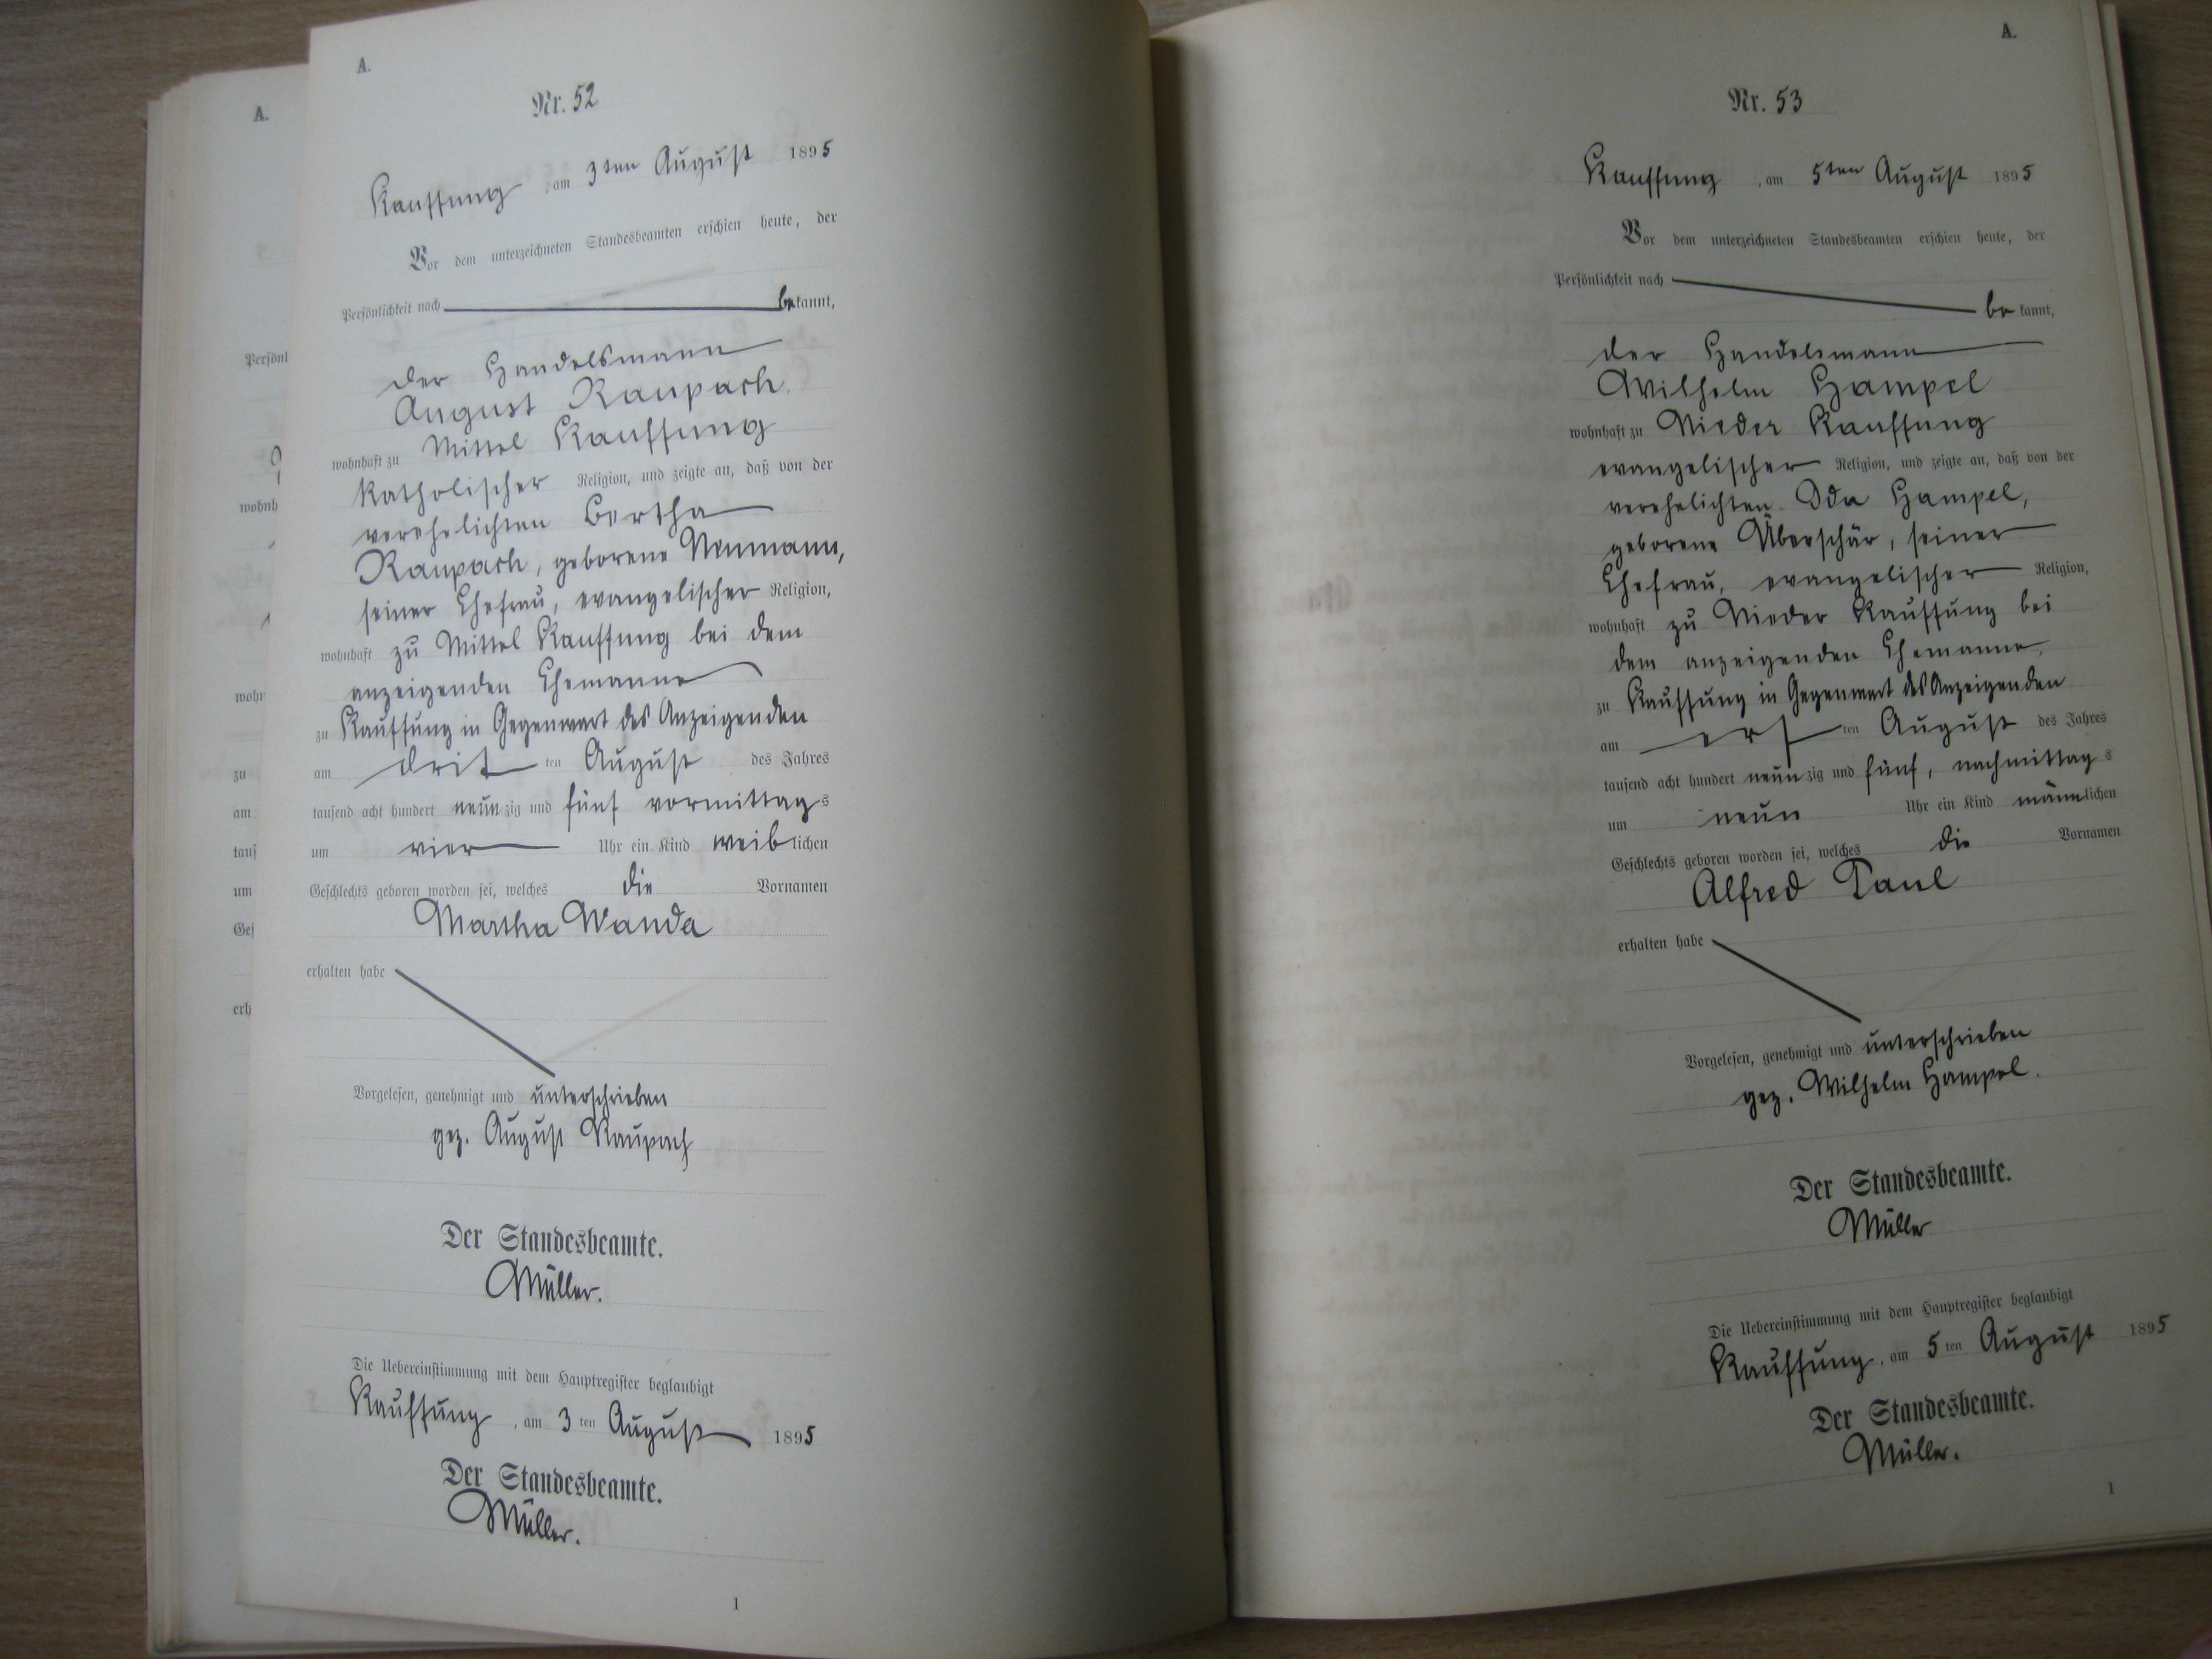 A.
Nr. 52
Kauffung, am 3ten August 1895
Vor dem unterzeichneten Standesbeamten erschien heute, der
Persönlichkeit nach bekannt,
der Handelsmann
August Raupach
wohnhaft zu Mittel Kauffung
katholischer Religion, und zeigte an, daß von der
verehelichten Bertha
Raupach, geborene Neumann,
seiner Ehefrau, evangelischer Religion,
wohnhaft zu Mittel Kauffung bei dem
anzeigenden Ehemanne
zu Kauffung in Gegenwart des Anzeigenden
am dritten August des Jahres
tausend acht hundert neunzig und fünf vormittags
um vier Uhr ein Kind weiblichen
Geschlechts geboren worden sei, welches die Vornamen
Martha Wanda
erhalten habe
Vorgelesen, genehmigt und unterschrieben
gez. August Raupach
Der Standesbeamte.
Müller.
Die Uebereinstimmung mit dem Hauptregister beglaubigt
Kauffung, am 3ten August 1895
Der Standesbeamte.
Müller.
1
A.
Persönl
wohnh
wohn
zu
am
taus
um
Ges
erh
A.
Nr. 53
Kauffung, am 5ten August 1895
Vor dem unterzeichneten Standesbeamten erschien heute, der
Persönlichkeit nach bekannt,
der Handelsmann
Wilhelm Hampel
wohnhaft zu Nieder Kauffung
evangelischer Religion, und zeigte an, daß von der
verehelichten Ida Hampel,
geborene Überschär, seiner
Ehefrau, evangelischer Religion,
wohnhaft zu Nieder Kauffung bei
dem anzeigenden Ehemanne,
zu Kauffung in Gegenwart des Anzeigenden
am ersten August des Jahres
tausend acht hundert neunzig und fünf, nachmittags
um neun Uhr ein Kind männlichen
Geschlechts geboren worden sei, welches die Vornamen
Alfred Paul
erhalten habe
Vorgelesen, genehmigt und unterschrieben
gez. Wilhelm Hampel.
Der Standesbeamte.
Müller
Die Uebereinstimmung mit dem Hauptregister beglaubigt
Kauffung, am 5ten August 1895
Der Standesbeamte.
Müller.
1